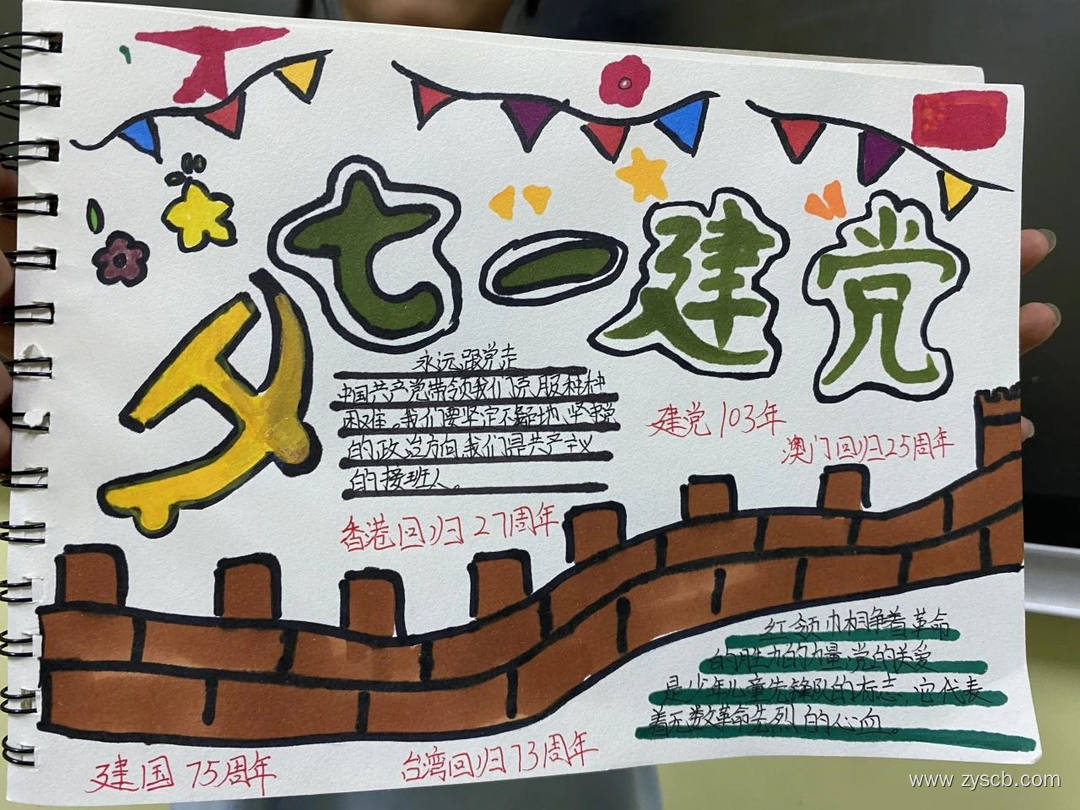 七一建党
永远跟党走
中国共产党带领我们克服种种
困难。我们要坚定不疑地，坚守党
的政治方向我们是共产主义
的接班人。
建党103年
澳门回归25周年
香港回归27周年
红领巾相争着革命
的胜力的力量，党的关爱
是少年儿童先锋队的标志，它代表
着无数革命先烈的心血。
建国75周年
台湾回归73周年
www.zyscb.com